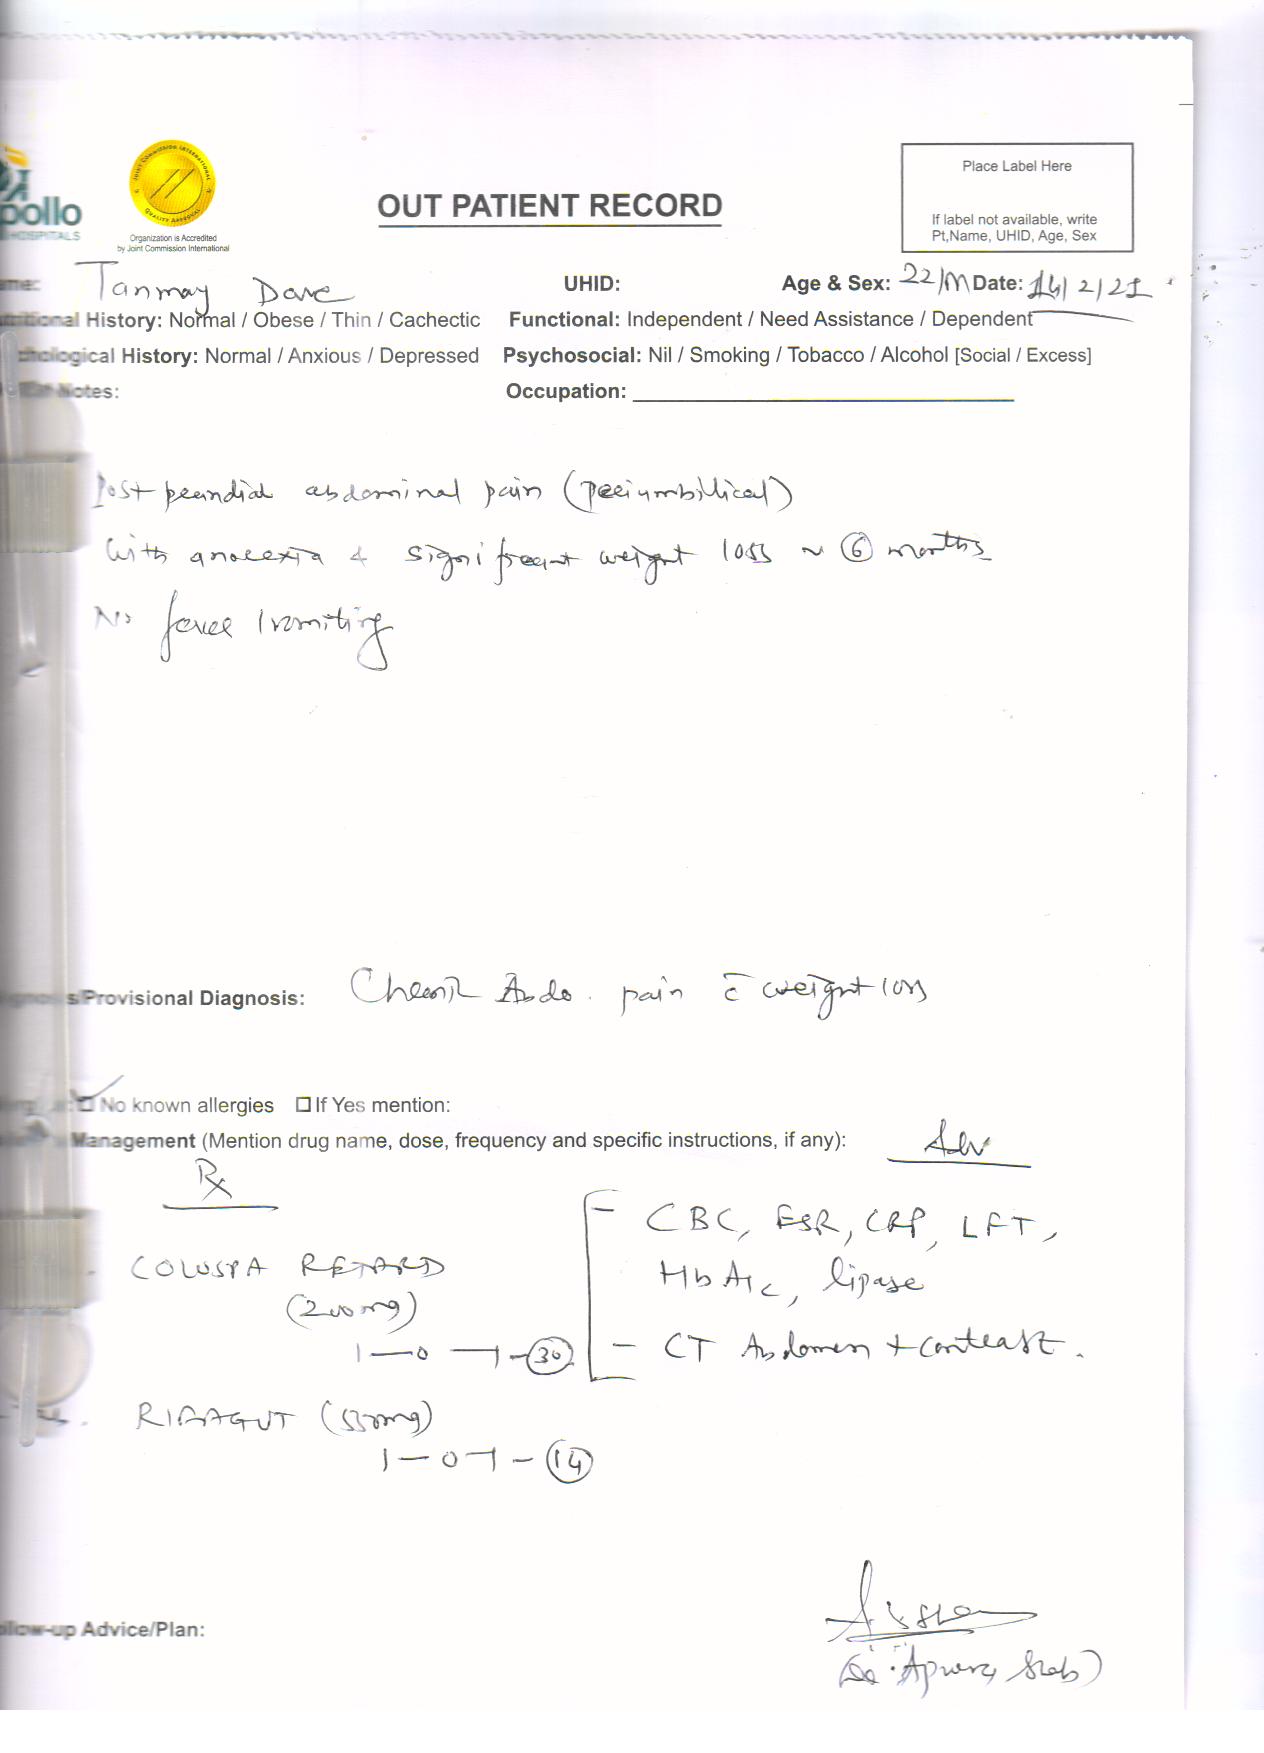 pollo
HOSPITALS
JOINT COMMISSION INTERNATIONAL
QUALITY APPROVAL
Organization is Accredited
by Joint Commission International
OUT PATIENT RECORD
Place Label Here
If label not available, write
Pt,Name, UHID, Age, Sex
me: Tanmay Dave UHID: Age & Sex: 22/M Date: 14/2/21
itional History: Normal / Obese / Thin / Cachectic Functional: Independent / Need Assistance / Dependent
chological History: Normal / Anxious / Depressed Psychosocial: Nil / Smoking / Tobacco / Alcohol [Social / Excess]
Notes: Occupation:
Post prandial abdominal pain (periumbilical)
with anorexia & significant weight loss ~ 6 months
No fever / vomiting
s/Provisional Diagnosis: Chronic Abdo. pain c̄ weight loss
No known allergies If Yes mention:
Management (Mention drug name, dose, frequency and specific instructions, if any): Adv
Rx
- CBC, ESR, CRP, LFT,
HbA1c, lipase
- CT Abdomen + contrast.
COLOSPA RETARD
(200mg)
1-0-1-30
RIFAGUT (550mg)
1-0-1-14
llow-up Advice/Plan:
(Dr. Apurva Shah)